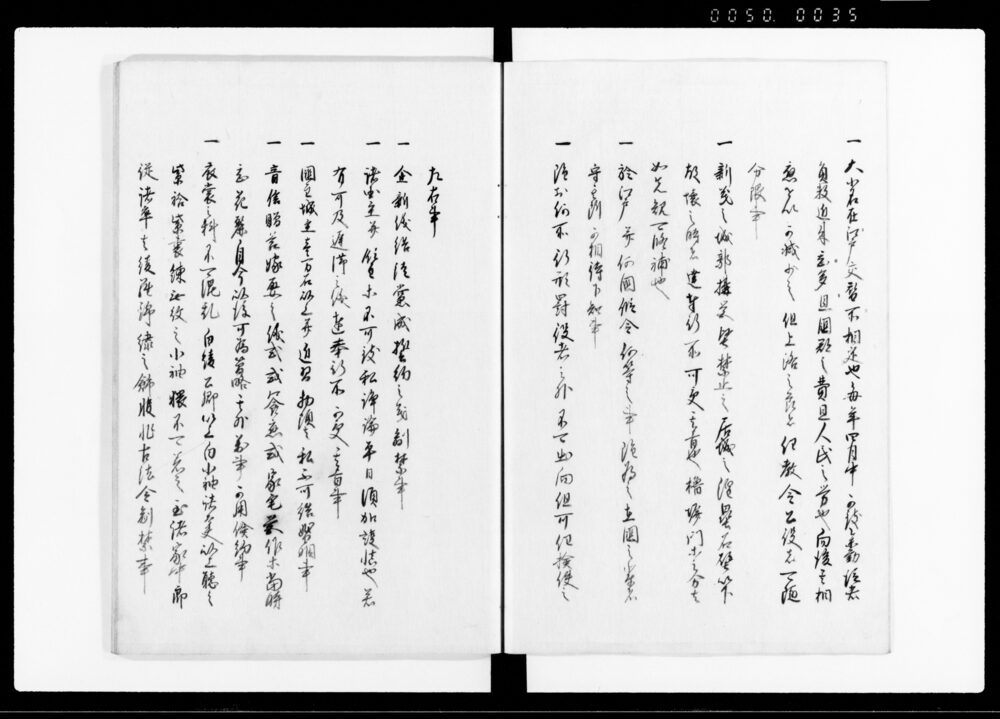 0050. 0035
一 大小名在江戸交替所相定也毎年四月中可致参勤従者
員数近来甚多且国郡之費且人民之労也向後其相
応を以可減少之但上洛之節者任教令公役者可随
分限事
一 新規之城郭搆営堅禁止之居城之隍塁石壁以下
敗壊之時者達奉行所可受其旨也櫓塀門等之分者
如先規可修補也
一 於江戸并何国仮令何等之事雖有之在国之輩者
守其所可相待下知事
一 雖於何所行刑罰役者之外不可出向但可任検使之
左右事
一 企新儀結徒党成誓約之儀制禁事
一 諸国主并領主等不可致私諍論平日須加謹慎也若
有可及遅滞之儀達奉行所可受其旨事
一 国主城主壱万石以上并近習物頭者私不可結婚姻事
一 音信贈答嫁娶之儀式或饗応或家宅営作等当時
甚花麗自今以後可為簡略其外万事可用倹約事
一 衣裳之科不可混乱白綾公卿以上白小袖諸大夫以上聴之
紫袷紫裏練無紋之小袖猥不可着之至諸家中郎
従諸卒綾羅錦繍之飾服非古法令制禁事